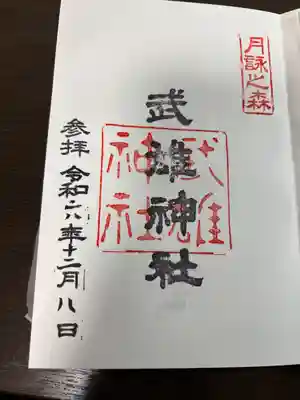 月詠之森
武雄神社
武雄
神社
参拝 令和六年十二月八日